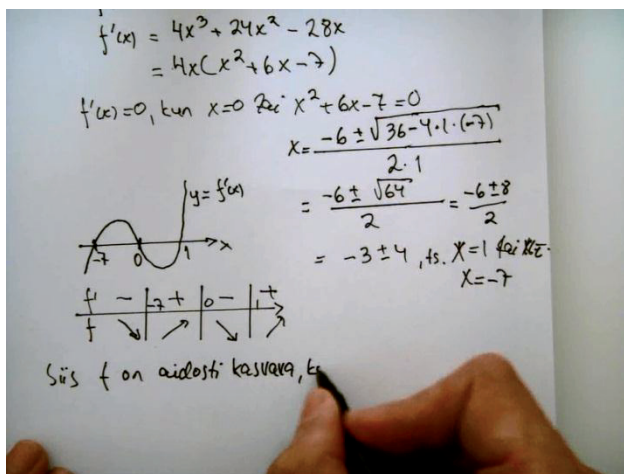 f'(x) = 4x³ + 24x² - 28x
= 4x(x² + 6x - 7)
f'(x) = 0, kun x = 0 tai x² + 6x - 7 = 0
x = (-6 ± √(36 - 4·1·(-7))) / (2·1)
= (-6 ± √64) / 2 = (-6 ± 8) / 2
= -3 ± 4, ts. x = 1 tai
x = -7
y = f'(x)
-7 0 1 x
f' - -7 + 0 - 1 +
f ↘ ↗ ↘ ↗
Siis f on aidosti kasvava,